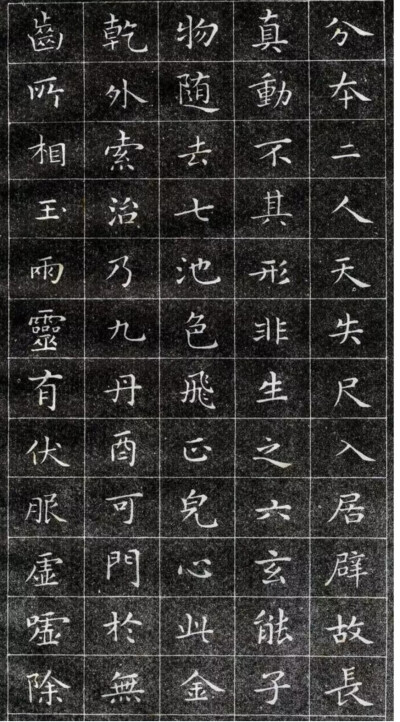 分本二人天失尺入居辟故長
真動不其形非生之六玄能子
物随去七池色飛正兒心此金
乾外索治乃九丹酉可門於無
齒所相玉雨靈有伏服虛噓除